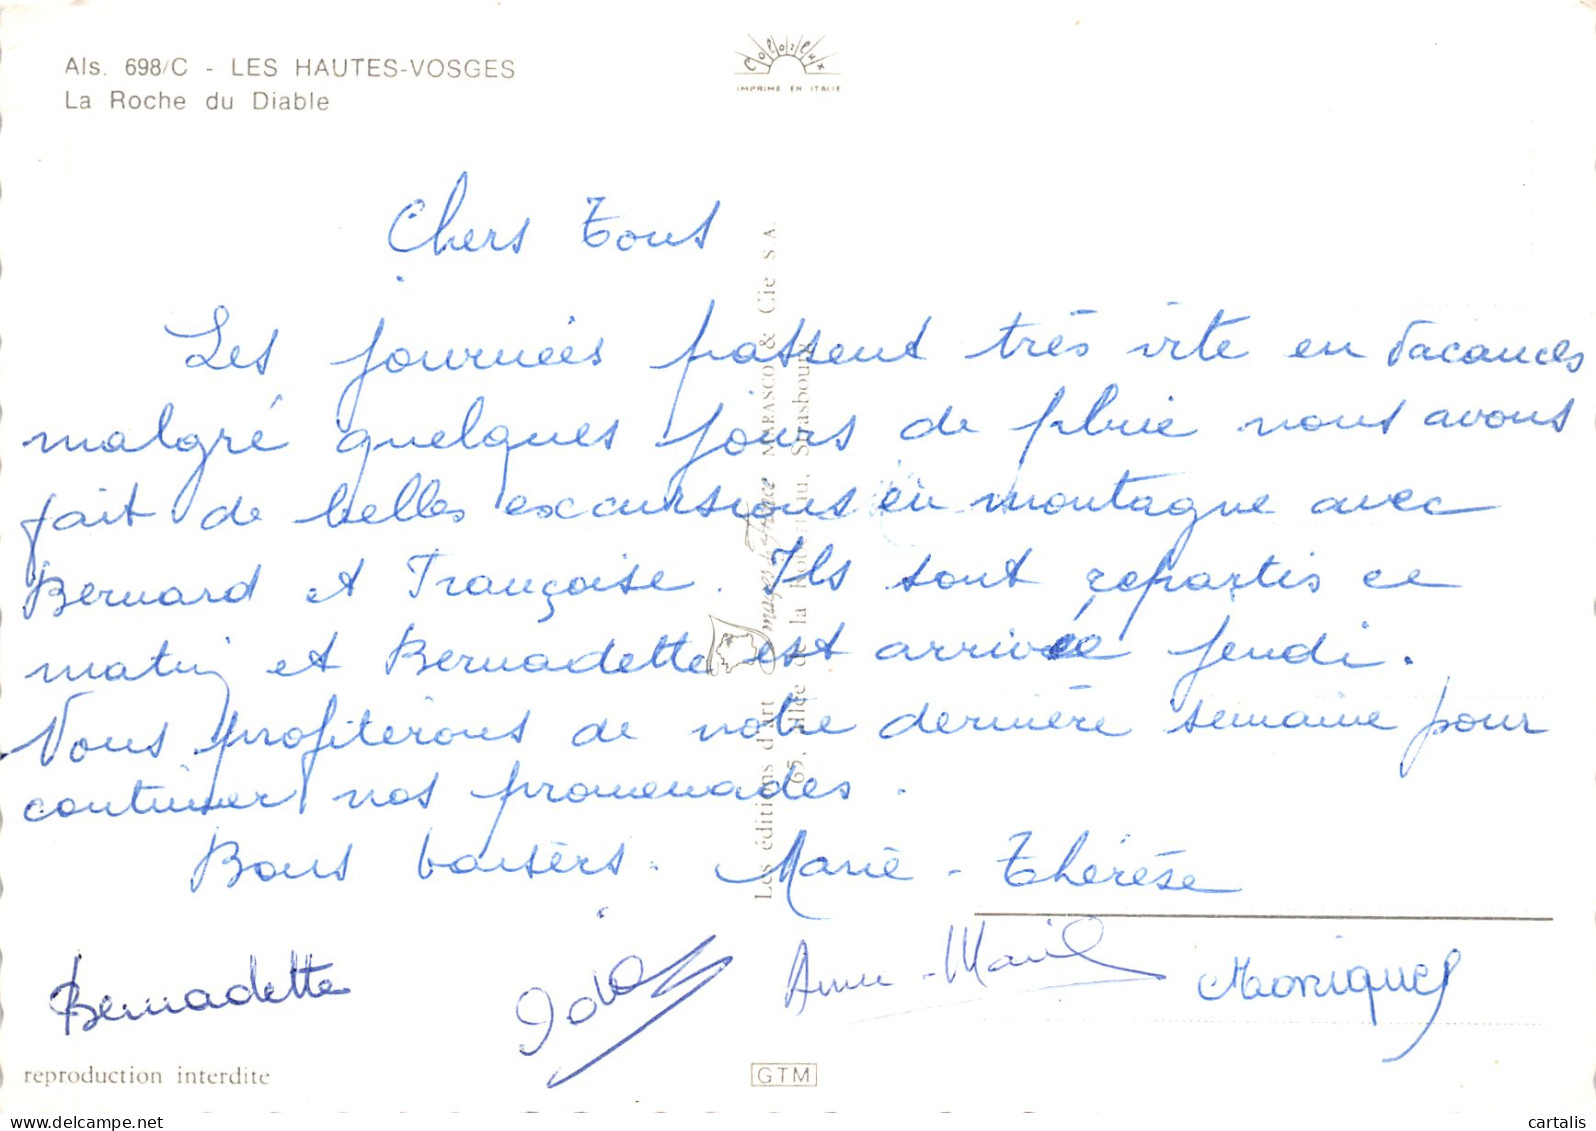 Als. 698/C - LES HAUTES-VOSGES
La Roche du Diable
Colorlux
IMPRIMÉ EN ITALIE
Chers Tous
Les journées passent très vite en vacances
malgré quelques jours de pluie nous avons
fait de belles excursions en montagne avec
Bernard et Françoise. Ils sont repartis ce
matin et Bernadette est arrivée jeudi.
Nous profiterons de notre dernière semaine pour
continuer nos promenades.
Bons baisers. Marie-Thérèse
Bernadette
Anne-Marie
Monique
Les éditions d'art Images de France MARASCO & Cie S.A.
65, allée de la Robertsau, Strasbourg
reproduction interdite
GTM
cartalis